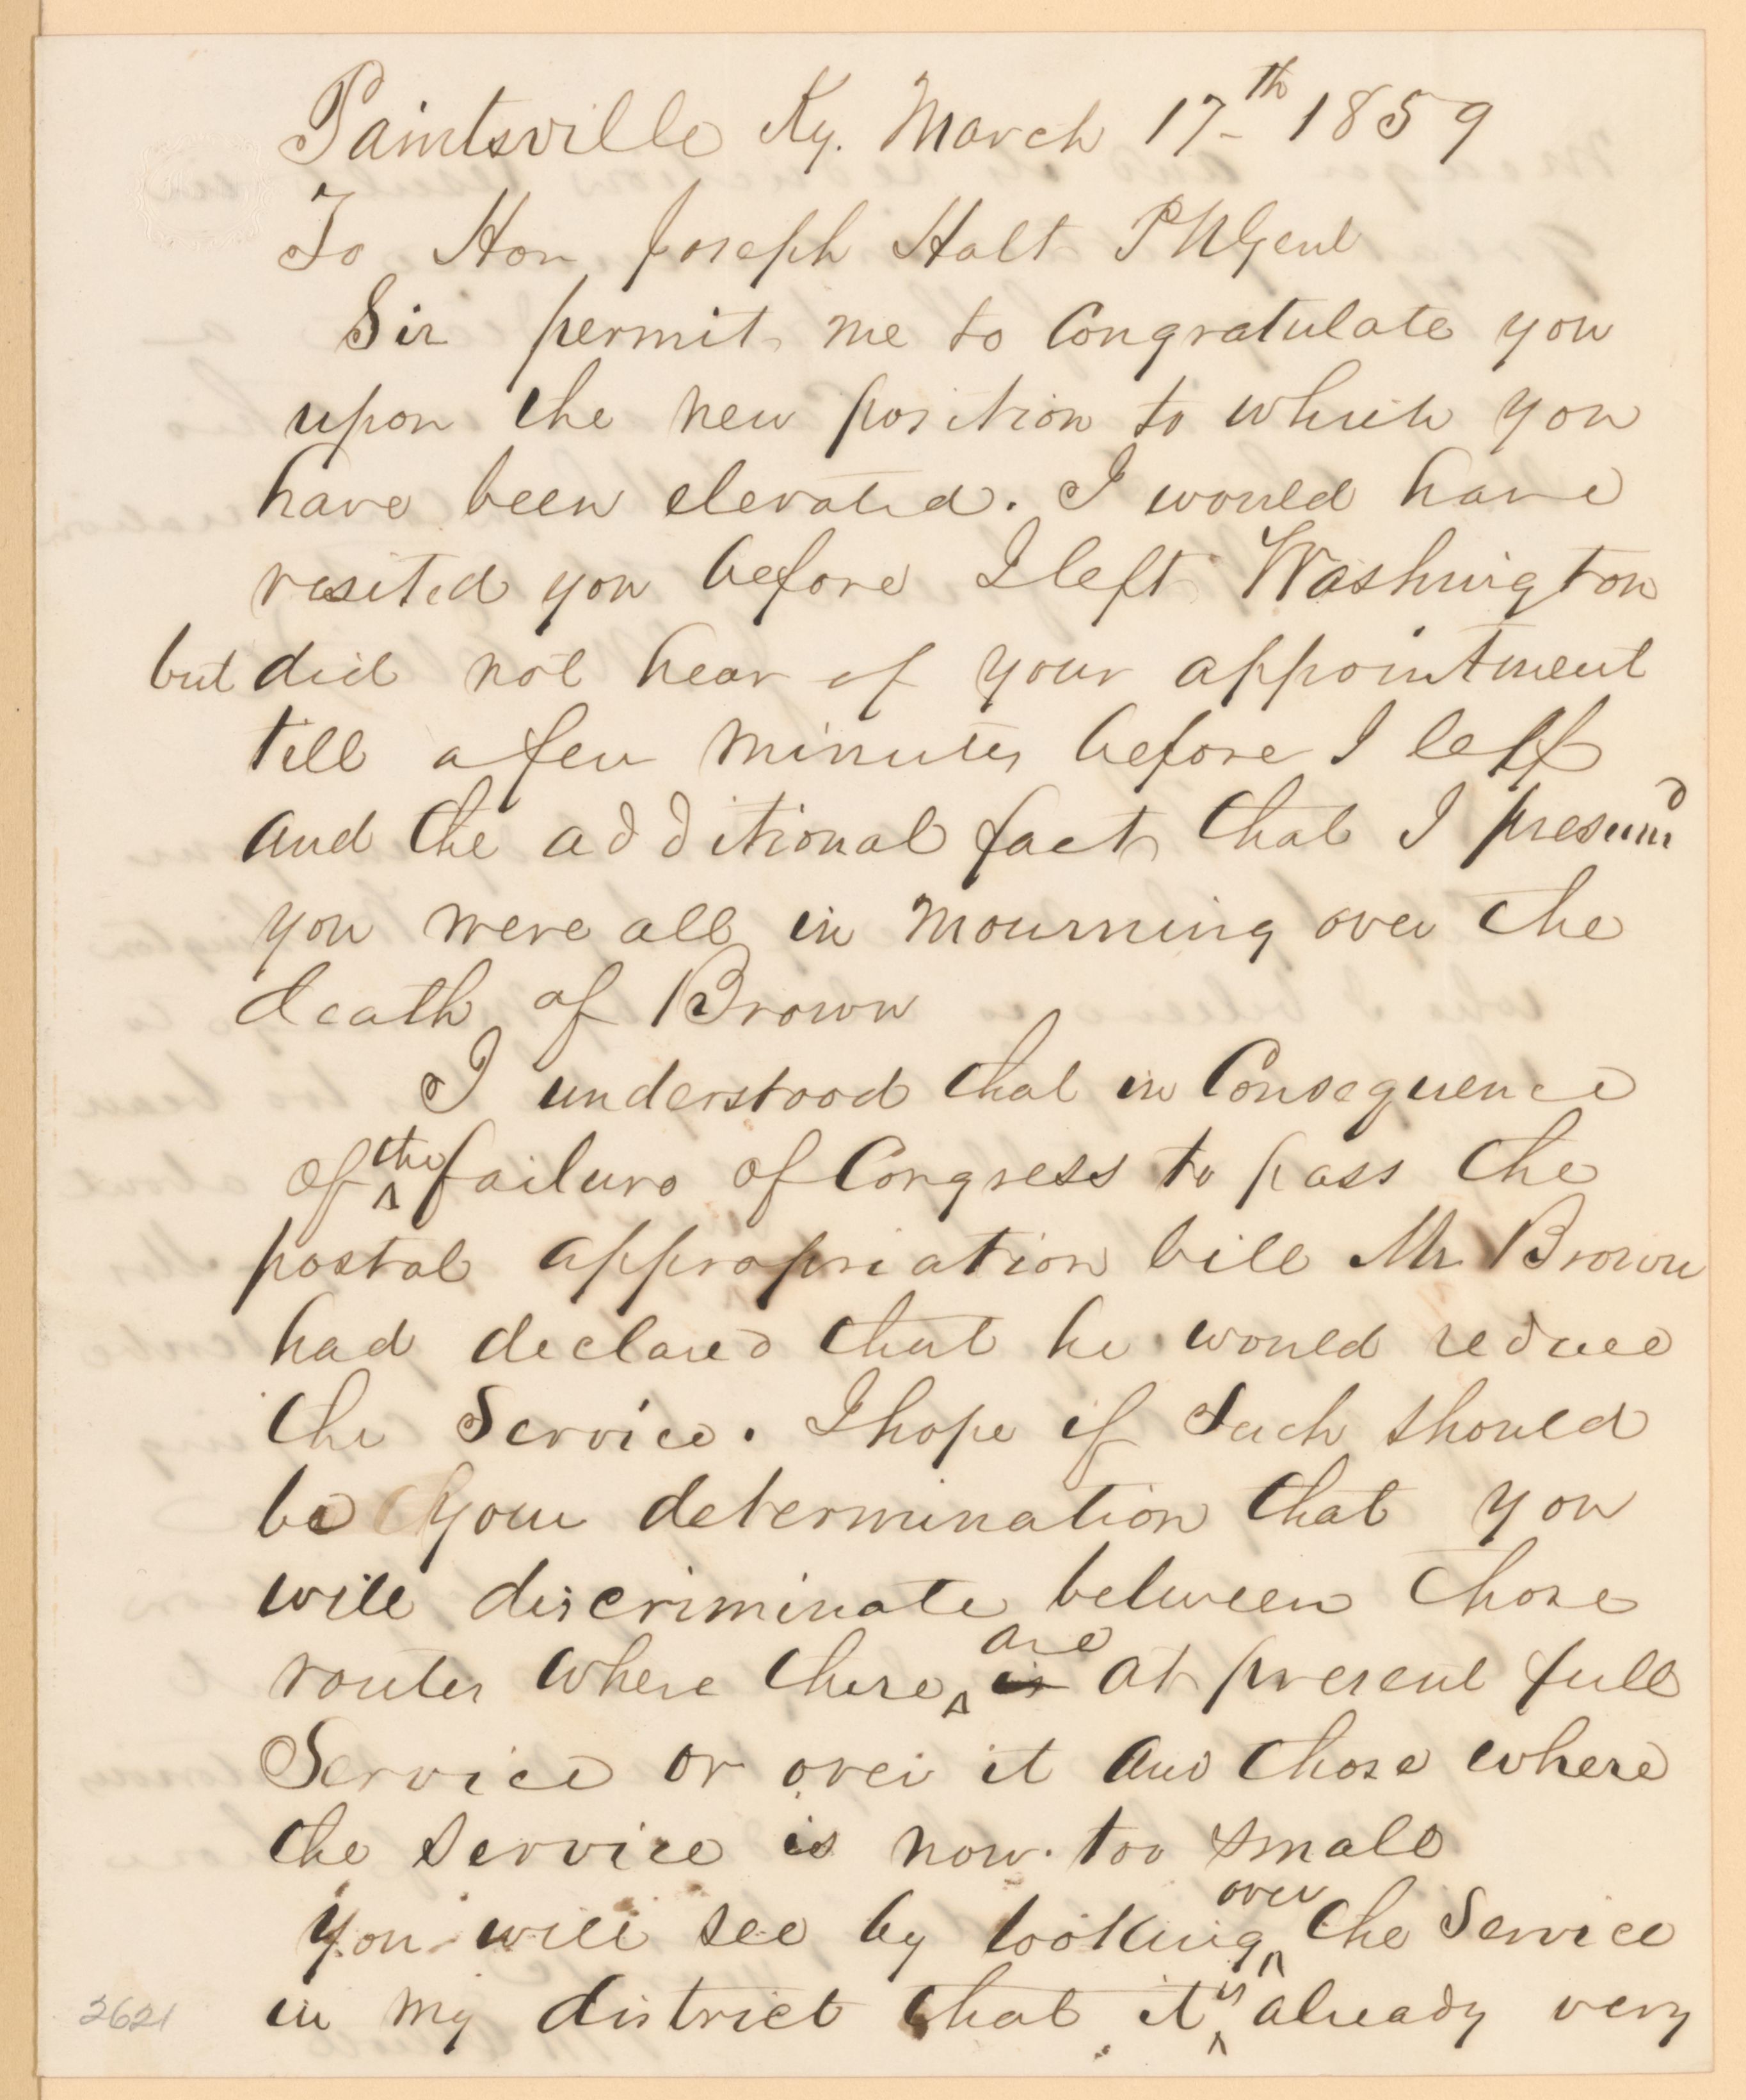 Paintsville Ky. March 17th 1859
To Hon Joseph Holt PMGenl
Sir permit me to Congratulate you
upon the new position to which you
have been elevated. I would have
visited you before I left Washington
but did not hear of your appointment
till a few minutes before I left
and the additional fact that I presumd
you were all in mourning over the
death of Brown
I understood that in Consequence
of the failure of Congress to pass the
postal appropriation bill Mr Brown
had declared that he would reduce
the Service. I hope if Such should
be your determination that you
will discriminate between those
routes where there are is at present full
Service or over it and those where
the Service is now too small
You will see by looking over the Service
in my district that it is already very
2621